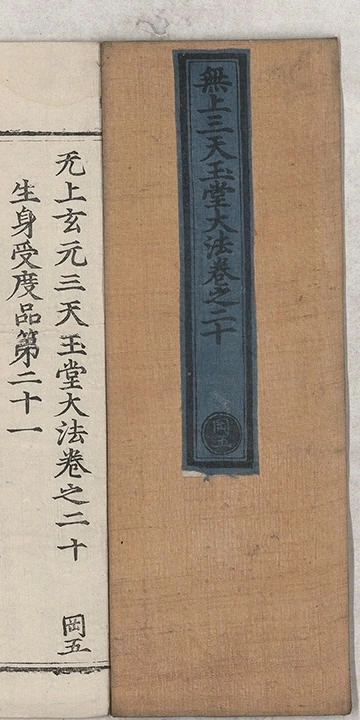 無上三天玉堂大法卷之二十
岡五
无上玄元三天玉堂大法卷之二十
岡五
生身受度品第二十一